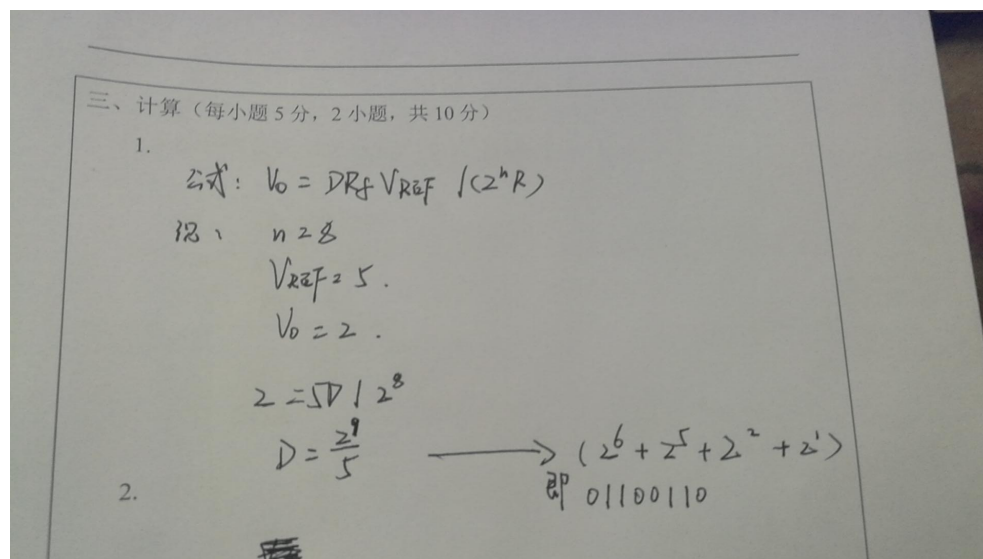 三、计算（每小题 5 分，2 小题，共 10 分）
1.
公式: V₀ = DRf VREF /(2ⁿR)
n=8
VREF=5.
V₀=2.
2=5D/2⁸
D=2⁹/5 → (2⁶+2⁵+2²+2¹)
即 01100110
2.